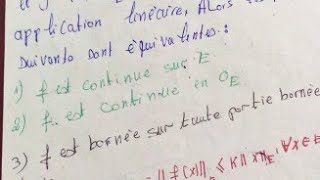 application linéaire, Alors
suivants sont équivalentes :
1) f est continue sur E
2) f est continue en 0E
3) f est bornée sur toute partie bornée
‖f(x)‖ ≤ K‖x‖E, ∀x∈E